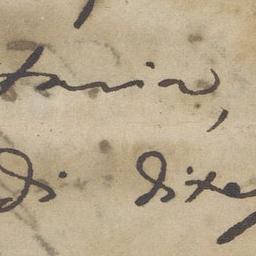 taria,
di dite